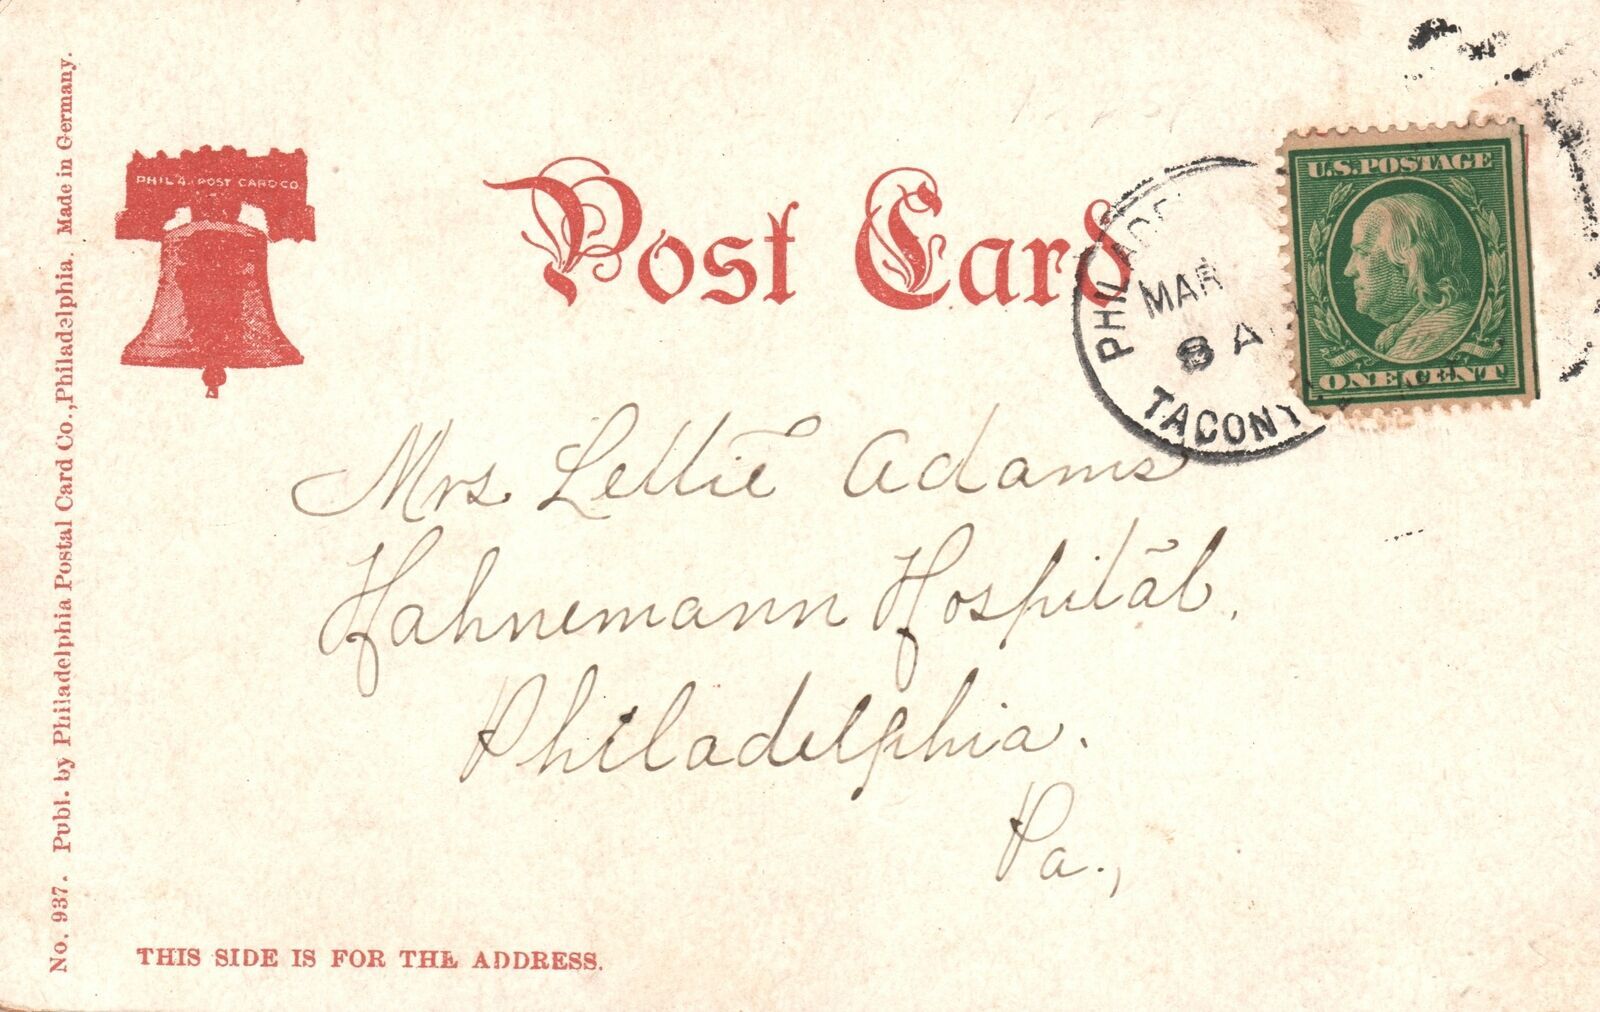 PHILA. POST CARD CO.
Post Card
U.S. POSTAGE
ONE CENT
MAR
8 A
TACONY
Mrs. Lettie Adams
Hahnemann Hospital,
Philadelphia.
Pa.,
THIS SIDE IS FOR THE ADDRESS.
No. 937. Publ. by Philadelphia Postal Card Co., Philadelphia. Made in Germany.